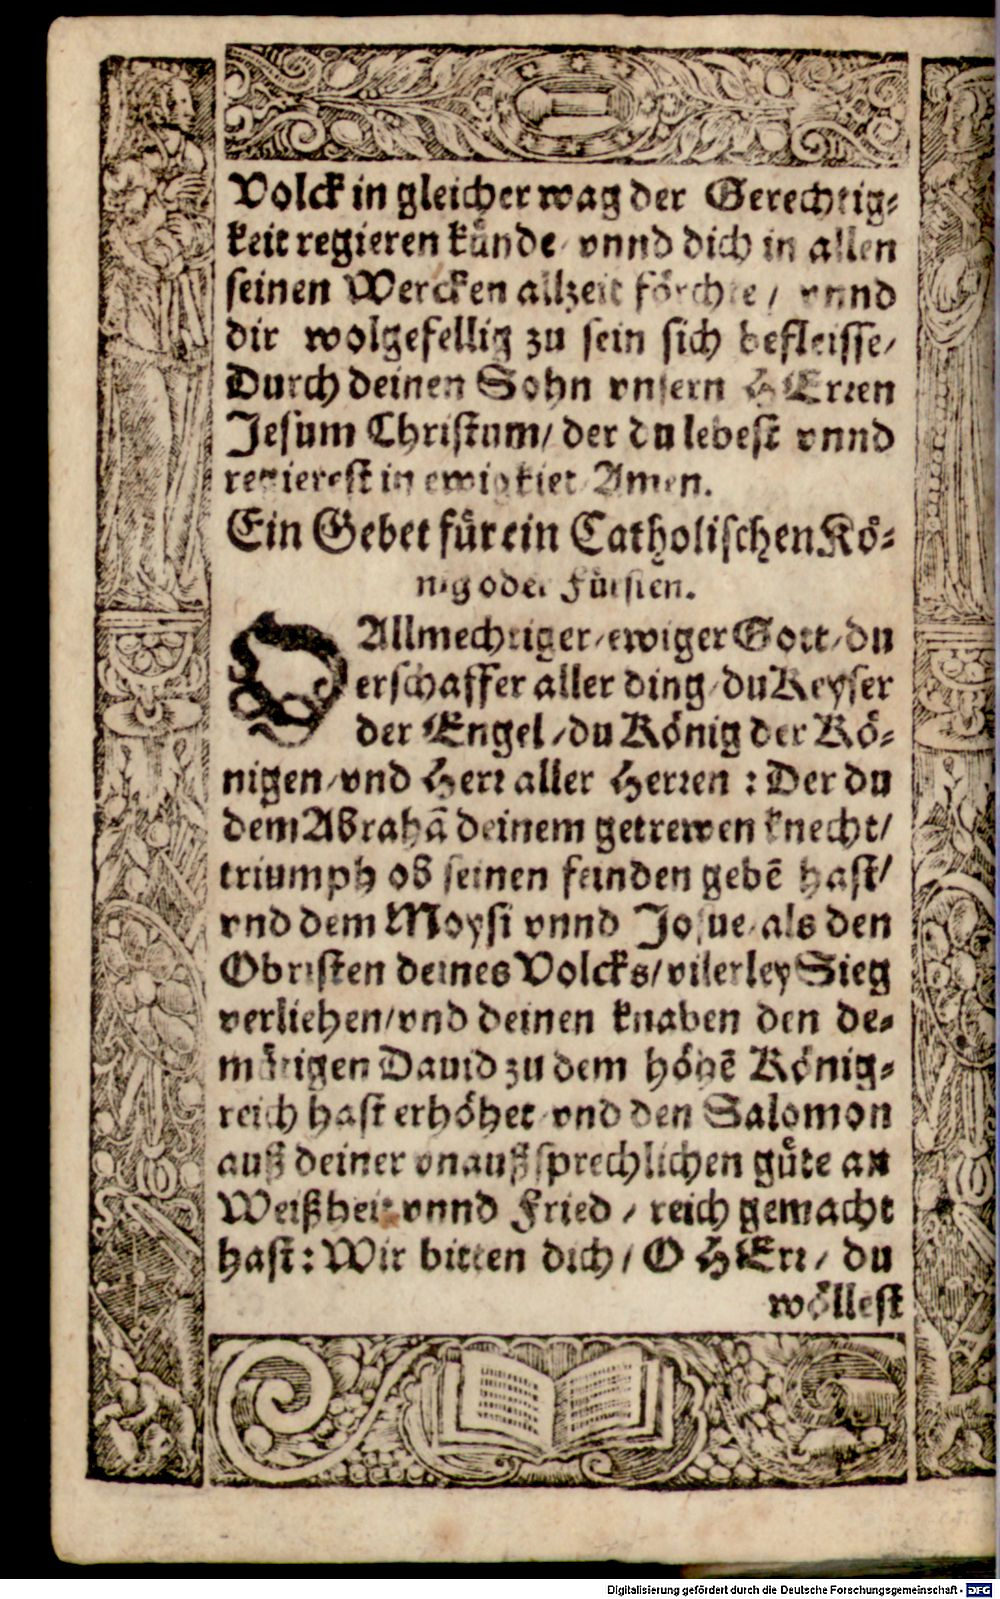 Volck in gleicher wag der Gerechtig⸗
keit regieren künde / vnnd dich in allen
seinen Wercken allzeit förchte / vnnd
dir wolgefellig zu sein sich befleisse/
Durch deinen Sohn vnsern HErren
Jesum Christum/ der du lebest vnnd
regierest in ewigkiet Amen.
Ein Gebet für ein Catholischen Kö⸗
nig oder Fürsten.
O Allmechtiger / ewiger Gott / du
erschaffer aller ding / du Keyser
der Engel / du König der Kö⸗
nigen / vnd Herr aller Herren : Der du
dem Abrahã deinem getrewen knecht/
triumph ob seinen feinden gebẽ hast/
vnd dem Moysi vnnd Josue / als den
Obristen deines Volcks/ vilerley Sieg
verliehen/ vnd deinen knaben den de⸗
mütigen Dauid zu dem höhẽ König⸗
reich hast erhöhet / vnd den Salomon
auß deiner vnaußsprechlichen güte an
Weißheit vnnd Fried / reich gemacht
hast : Wir bitten dich / O HErr / du
wöllest
Digitalisierung gefördert durch die Deutsche Forschungsgemeinschaft - DFG